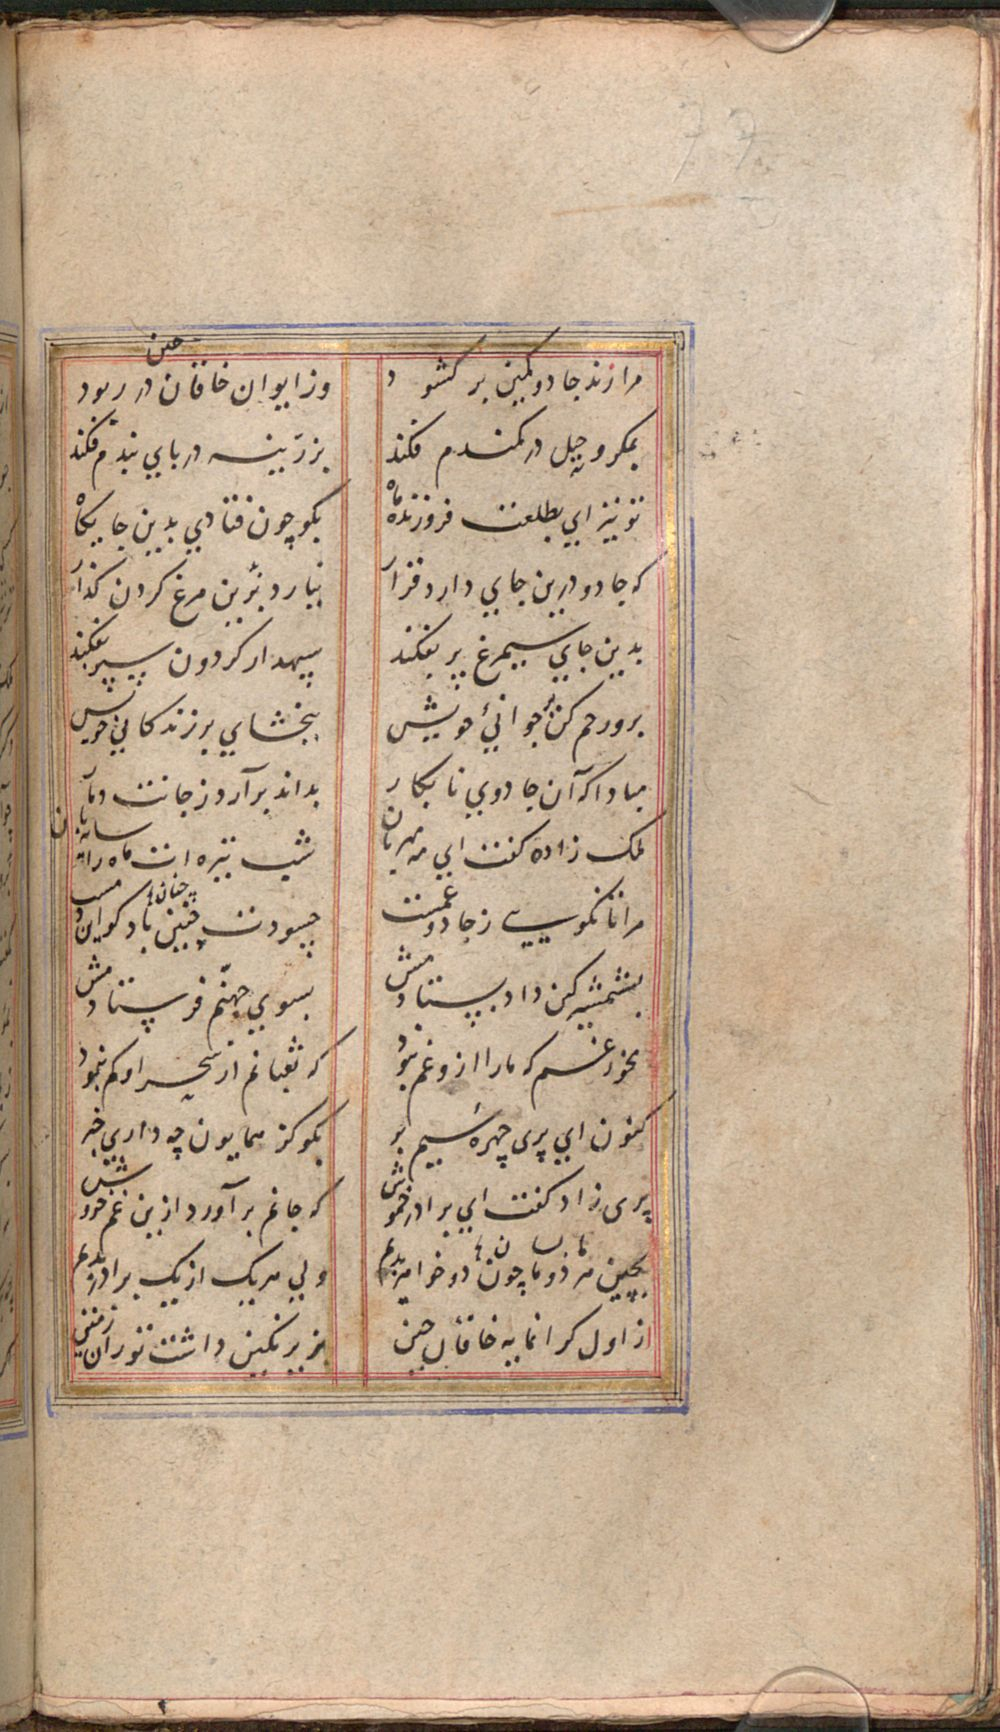 مرا زند جادو کمین بر کشود
وز ایوان خاقان در ربود
چین
بمکر و حیل در کمندم فکند
بزرینه در پای بندم فکند
تو نیز ای بطلعت فروزنده ماه
بگو چون فتادی بدین جایگاه
که جادو درین جای دارد قرار
نیارد برین مرغ کردن گذار
بدین جای سیمرغ پر بفکند
سپهدار گردون سپر بفکند
برو رحم کن بر جوانی خویش
ببخشای بر زندگانی خویش
مبادا که آن جادوی نابکار
بداند برآرد ز جانت دمار
ملک زاده گفت ای مه مهربان
شب تیره ات ماه را سایه بان
مرا تا نگویی ز جادو غمست
چه سودت چنین باد کو این دمست
چنان
بشمشیر کین داد بستادمش
بسوی جهنم فرستادمش
مخور غم که ما را ازو غم نبود
که ثعبانم از سحر او کم نبود
کنون ای پری چهره سیم بر
بگو کز همایون چه داری خبر
پری زاد گفت ای برادر خموش
که جانم برآورد ازین غم خروش
بچین من دو ماه چون دو خواهر بدیم
ولی هر یک از یک برادر بدیم
از اول گرانمایه خاقان چین
بزیر نگین داشت توران زمین